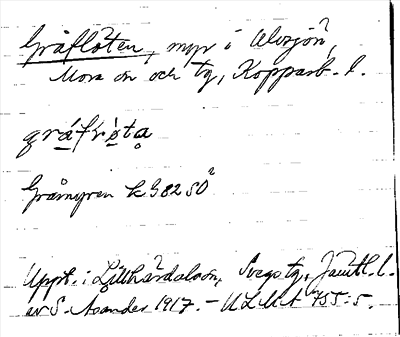 Gråfloten, myr i Älvsjön,
Mora sn och tg, Kopparb. l.
gráfrøta
Gråmyren k 982 SO
Uppt. i Lillhärdalssn, Svegs tg, Jämtl. l.
av S. Asander 1917. – ULMA 755:5.